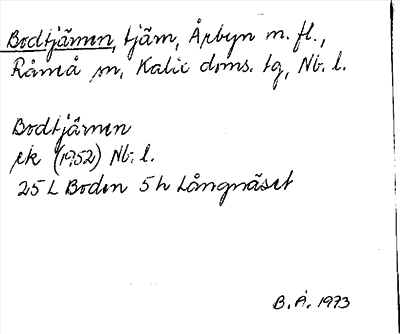 Bodtjärnen, tjärn, Årbyn m. fl.,
Råneå sn, Kalix doms. tg, Nb. l.
Bodtjärnen
ek (1952) Nb. l.
25 L Boden 5 h Långnäset
B. Å. 1973